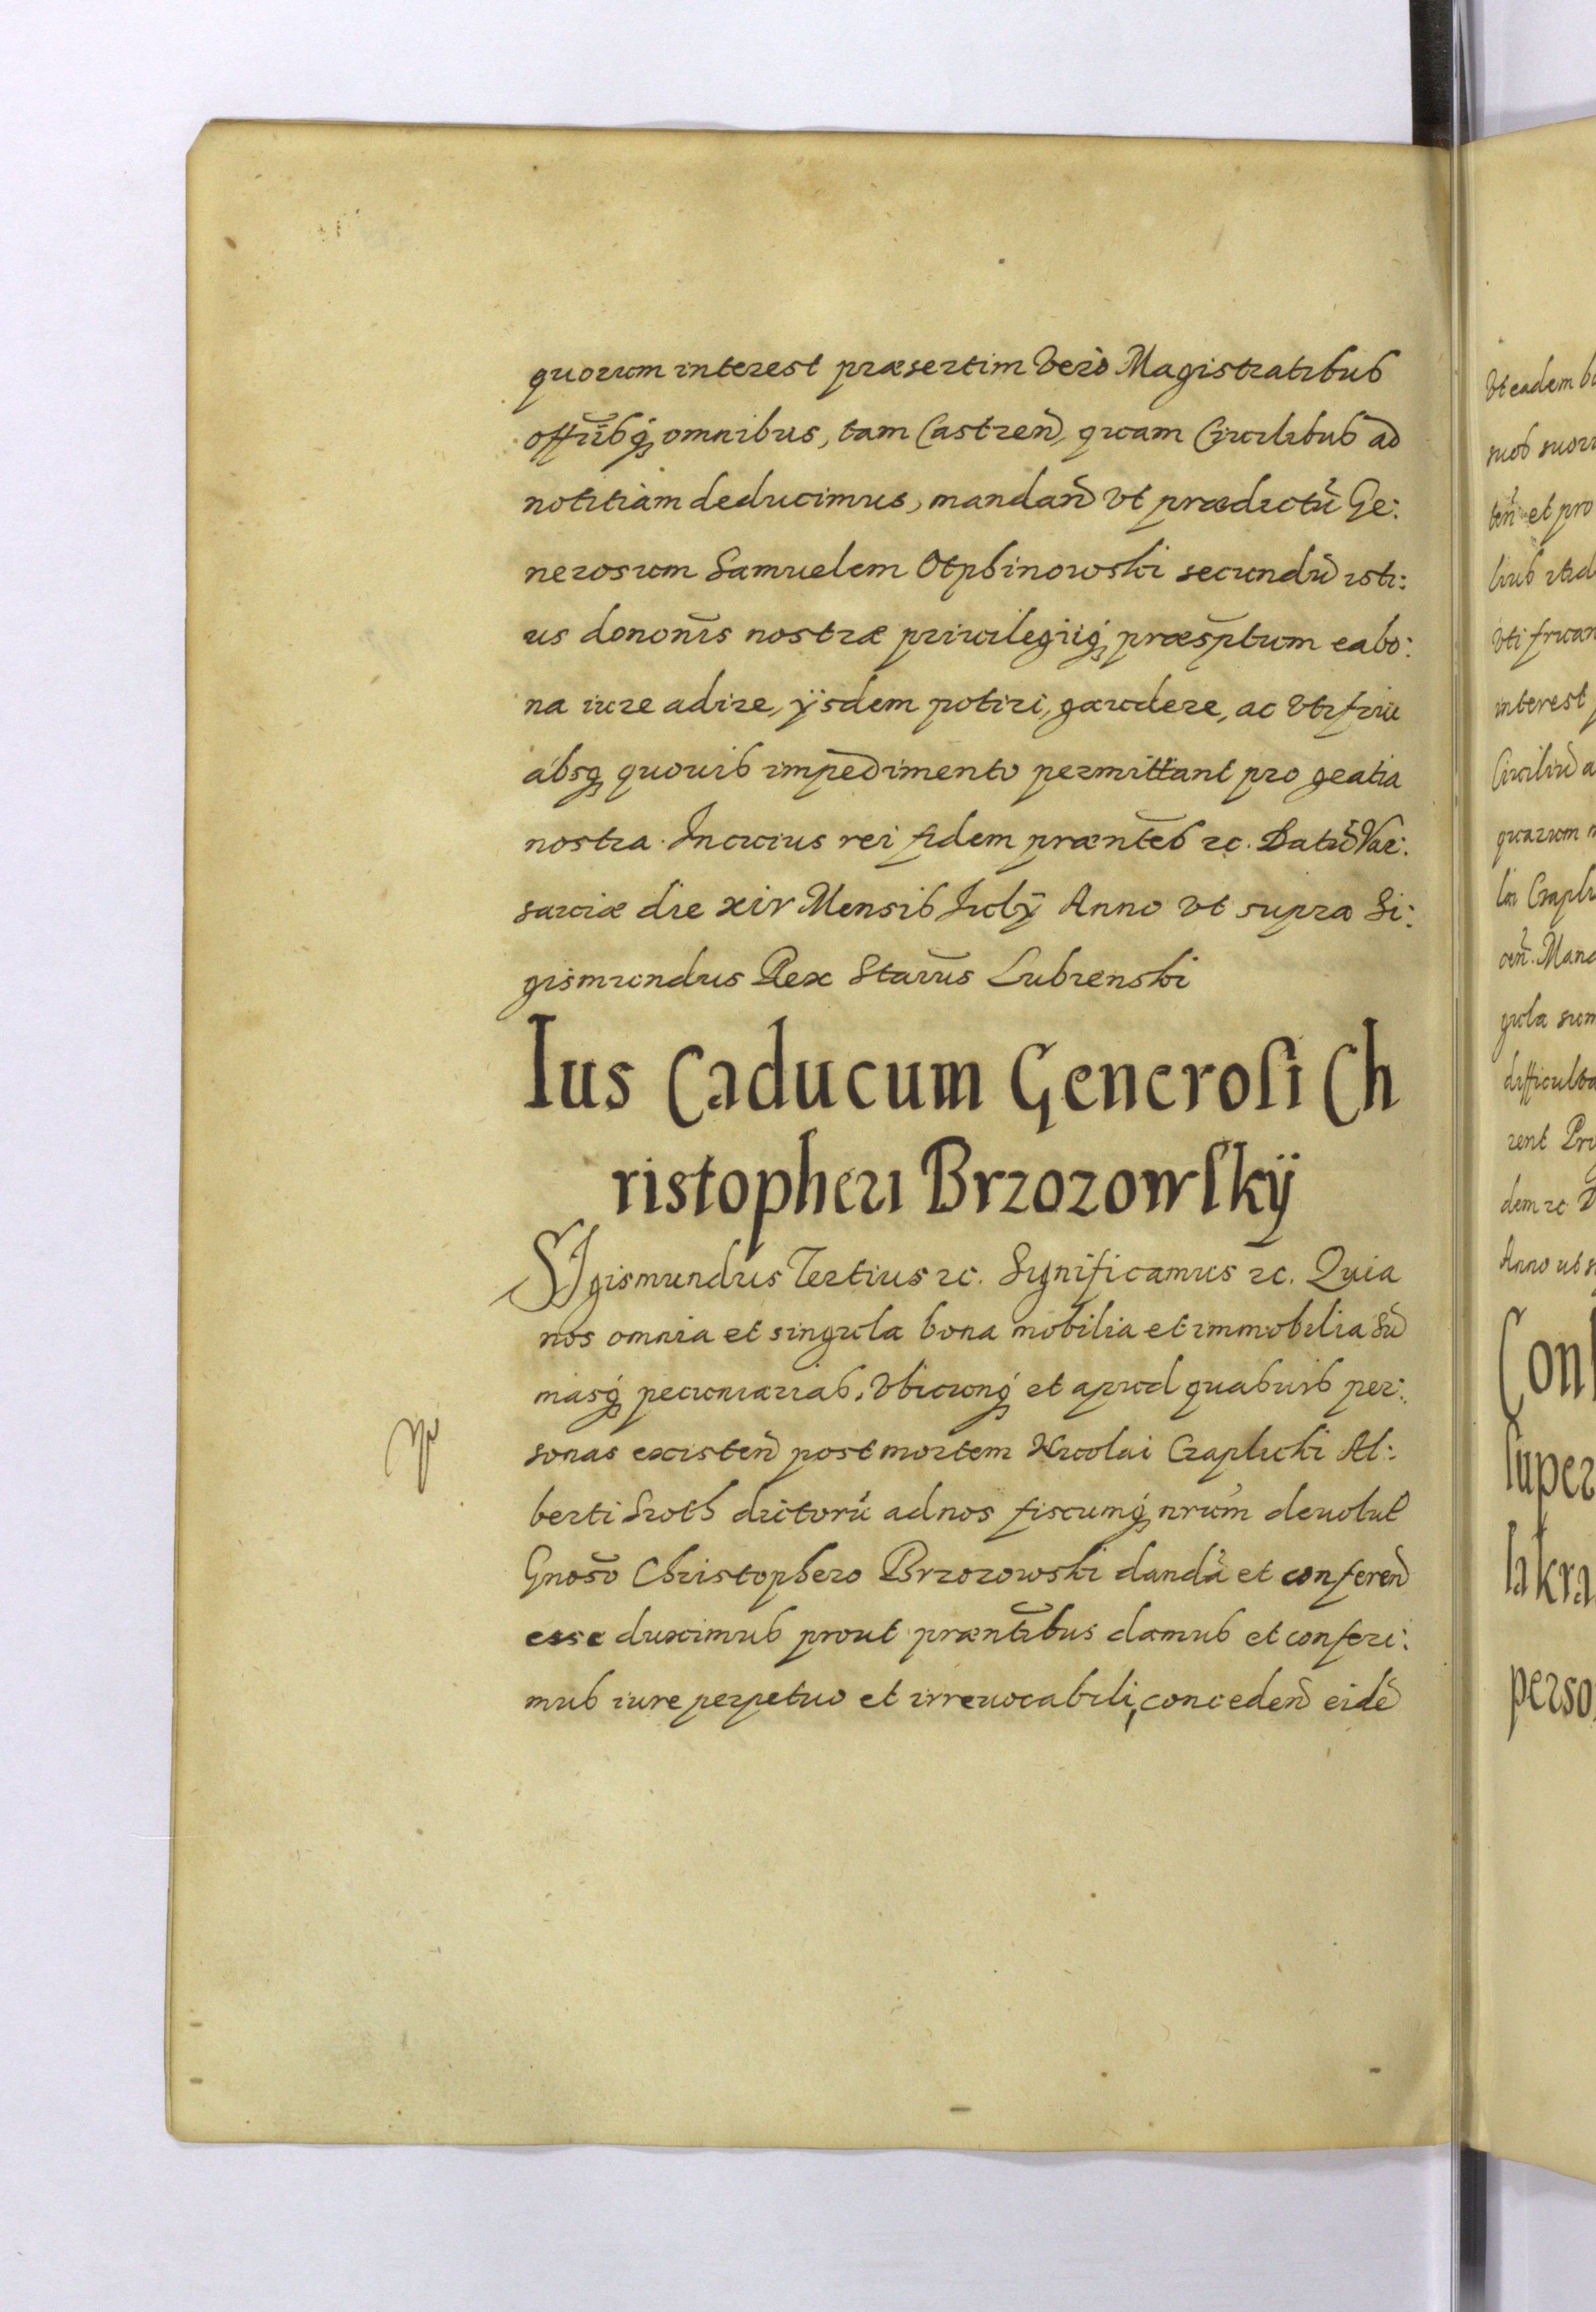 quorum interest præsertim Verò Magistratibus
offīibq́ omnibus, tam Castren̄, quam Ciuilibus ad
notitiam deducimus, mandan̄ vt prædictū Ge:
nerosum Samuelem Otphinowski secundū isti:
us dono͞nis nostræ priuilegiiq́ præs͞ptum ea bo:
na iure adire, ÿsdem potiri, gaudere, ac Vtifrui
absq́ quouis impedimento permittant pro gratia
nostra. In cuius rei fidem præn͞tes ꝛc. Datū Var:
sauiæ die xiv Mensis Julÿ Anno vt supra Si:
gismundus Rex Sta͞us Lubienski
Ius Caducum Generoſi Ch
ristopheri Brzozowſkÿ
SIgismundus Tertius ꝛc. Significamus ꝛc. Quia
nos omnia et singula bona mobilia et immobilia Sū
masq́ pecuniarias, Vbicunq́ et apud quasuis per:
sonas existen̄ post mortem Nicolai Czaplicki Al:
berti dictorū ad nos fiscumq́ nrūm deuolut
Gno͞so Christophero Brzozowski danda et conferen̄
esse duximus prout præn͞tibus damus et conferi:
mus iure perpetuo et irreuocabili, conceden̄ eidē
Vt eadem bo
suos suor
ten̄ et pro
uti fruan
interest
Ciuiliū a
quarum
la Czapli
cen̄. Mand
gula sum
difficulta
rent Pri
dem ꝛc D
Anno ut s
Conſ
super
lakra
perso